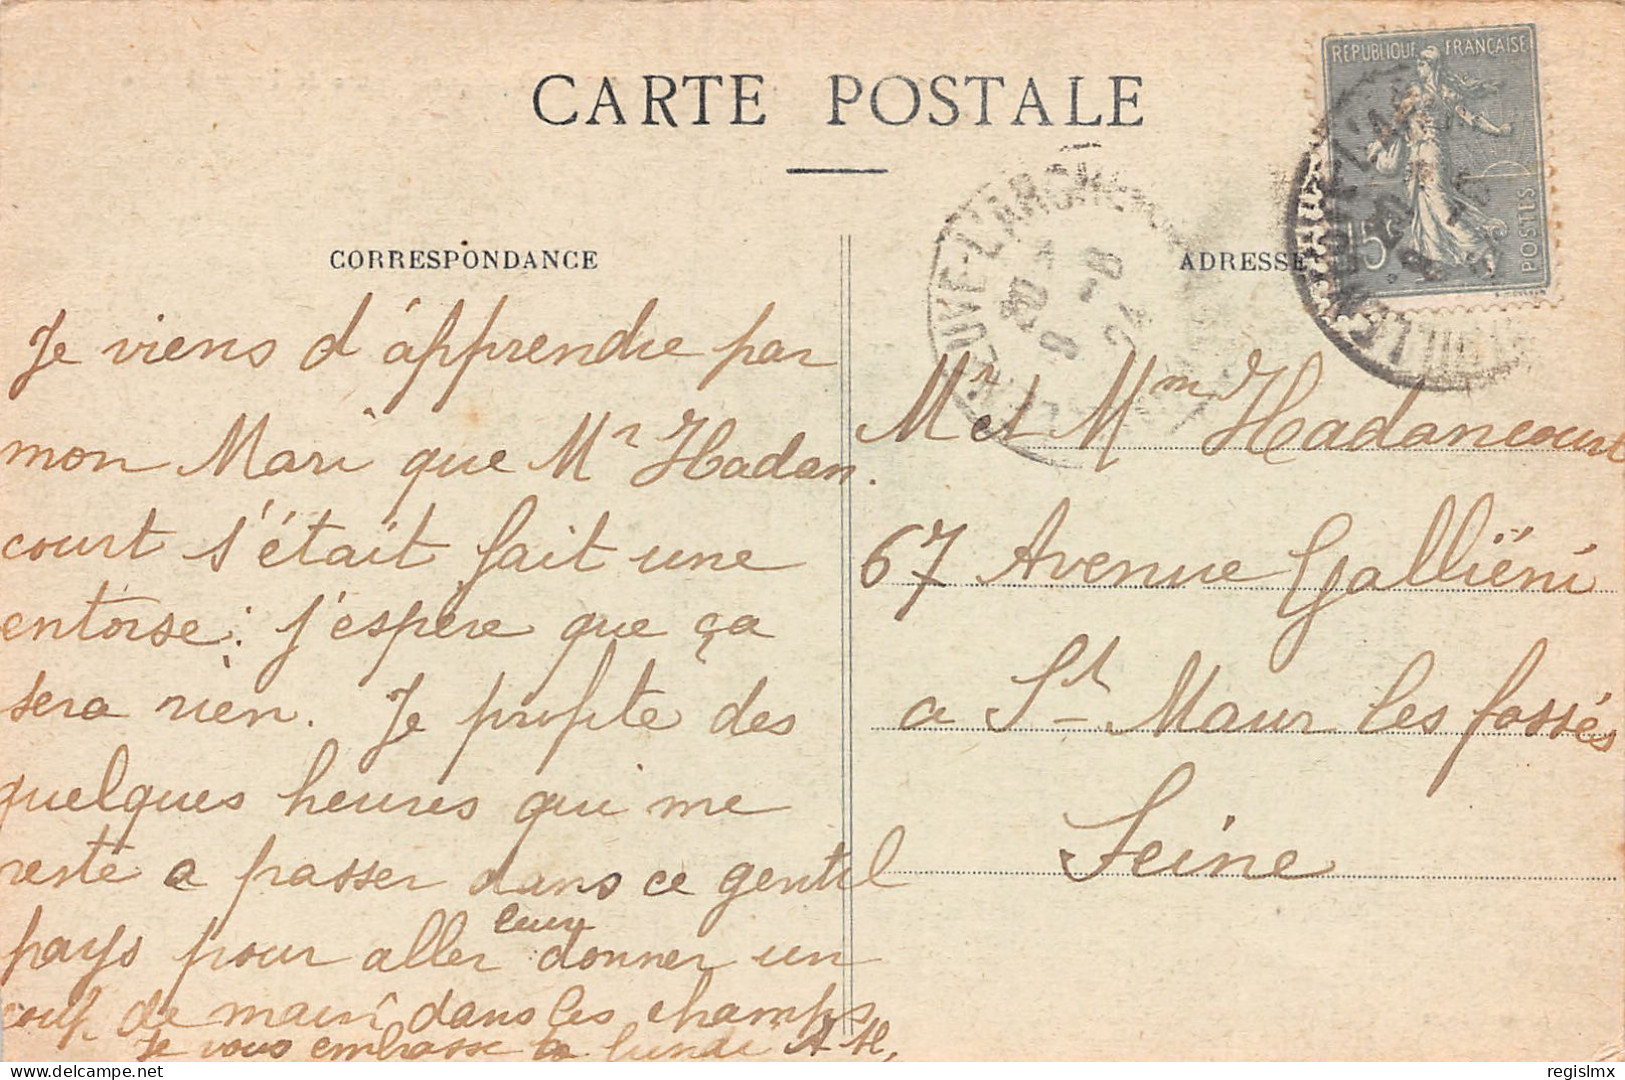 CARTE POSTALE
REPUBLIQUE FRANÇAISE
15c
POSTES
VILLENEUVE-L'ARCHE
8 -8
24
CORRESPONDANCE
ADRESSE
Je viens d'apprendre par
mon Mari que Mr Hadan.
court s'était fait une
entorse: j'espère que ça
sera rien. Je profite des
quelques heures qui me
reste a passer dans ce gentil
pays pour aller leur donner un
coup de main dans les champs
Je vous embrasse a lundi A H.
Mr et Mm Hadancourt
67 Avenue Galliéni
a St Maur les fossés
Seine
delcampe.net
regislmx